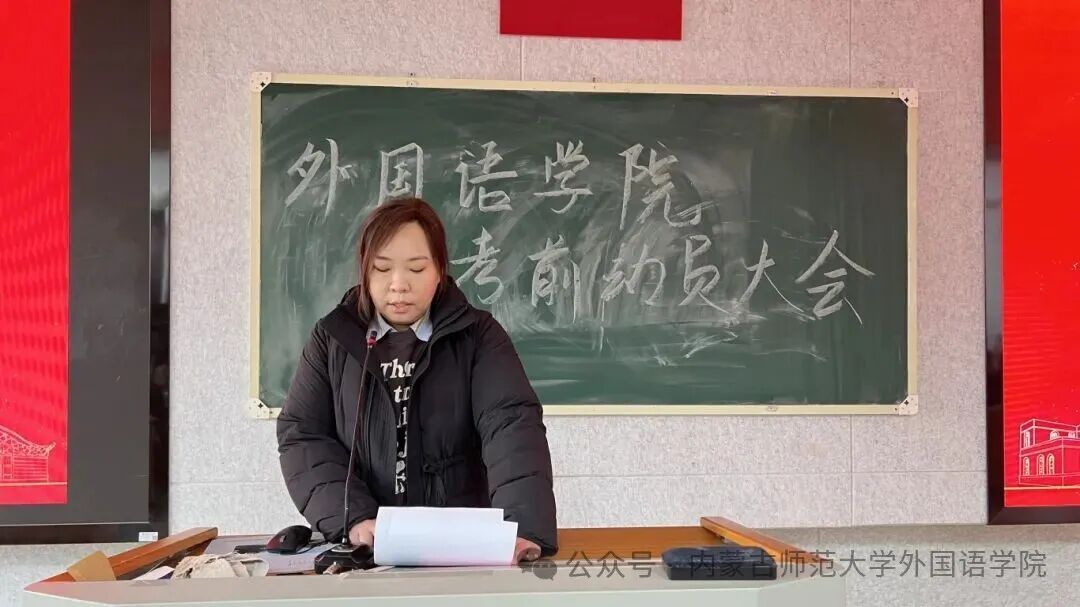 外国语学院
考前动员大会
公众号 · 内蒙古师范大学外国语学院